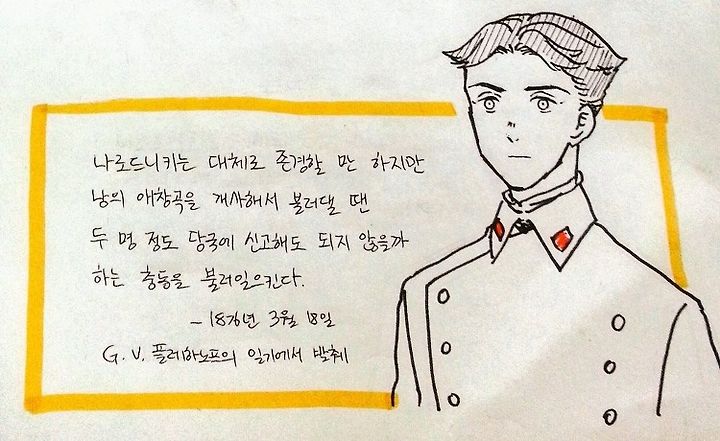 나로드니키는 대체로 존경할 만 하지만
남의 애창곡을 개사해서 불러댈 땐
두 명 정도 당국에 신고해도 되지 않을까
하는 충동을 불러일으킨다.
- 1876년 3월 18일
G. V. 플레하노프의 일기에서 발췌